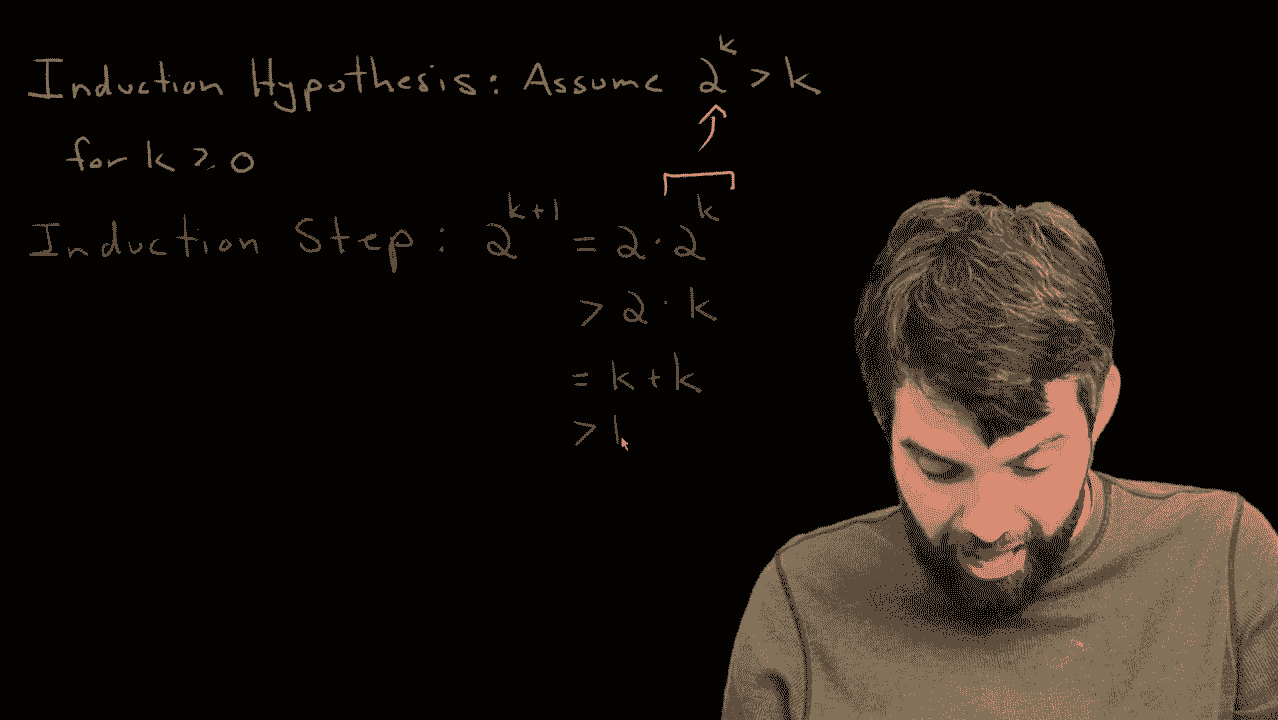 Induction Hypothesis: Assume 2^k > k
for k ≥ 0
Induction Step: 2^{k+1} = 2 · 2^k
> 2 · k
= k + k
>